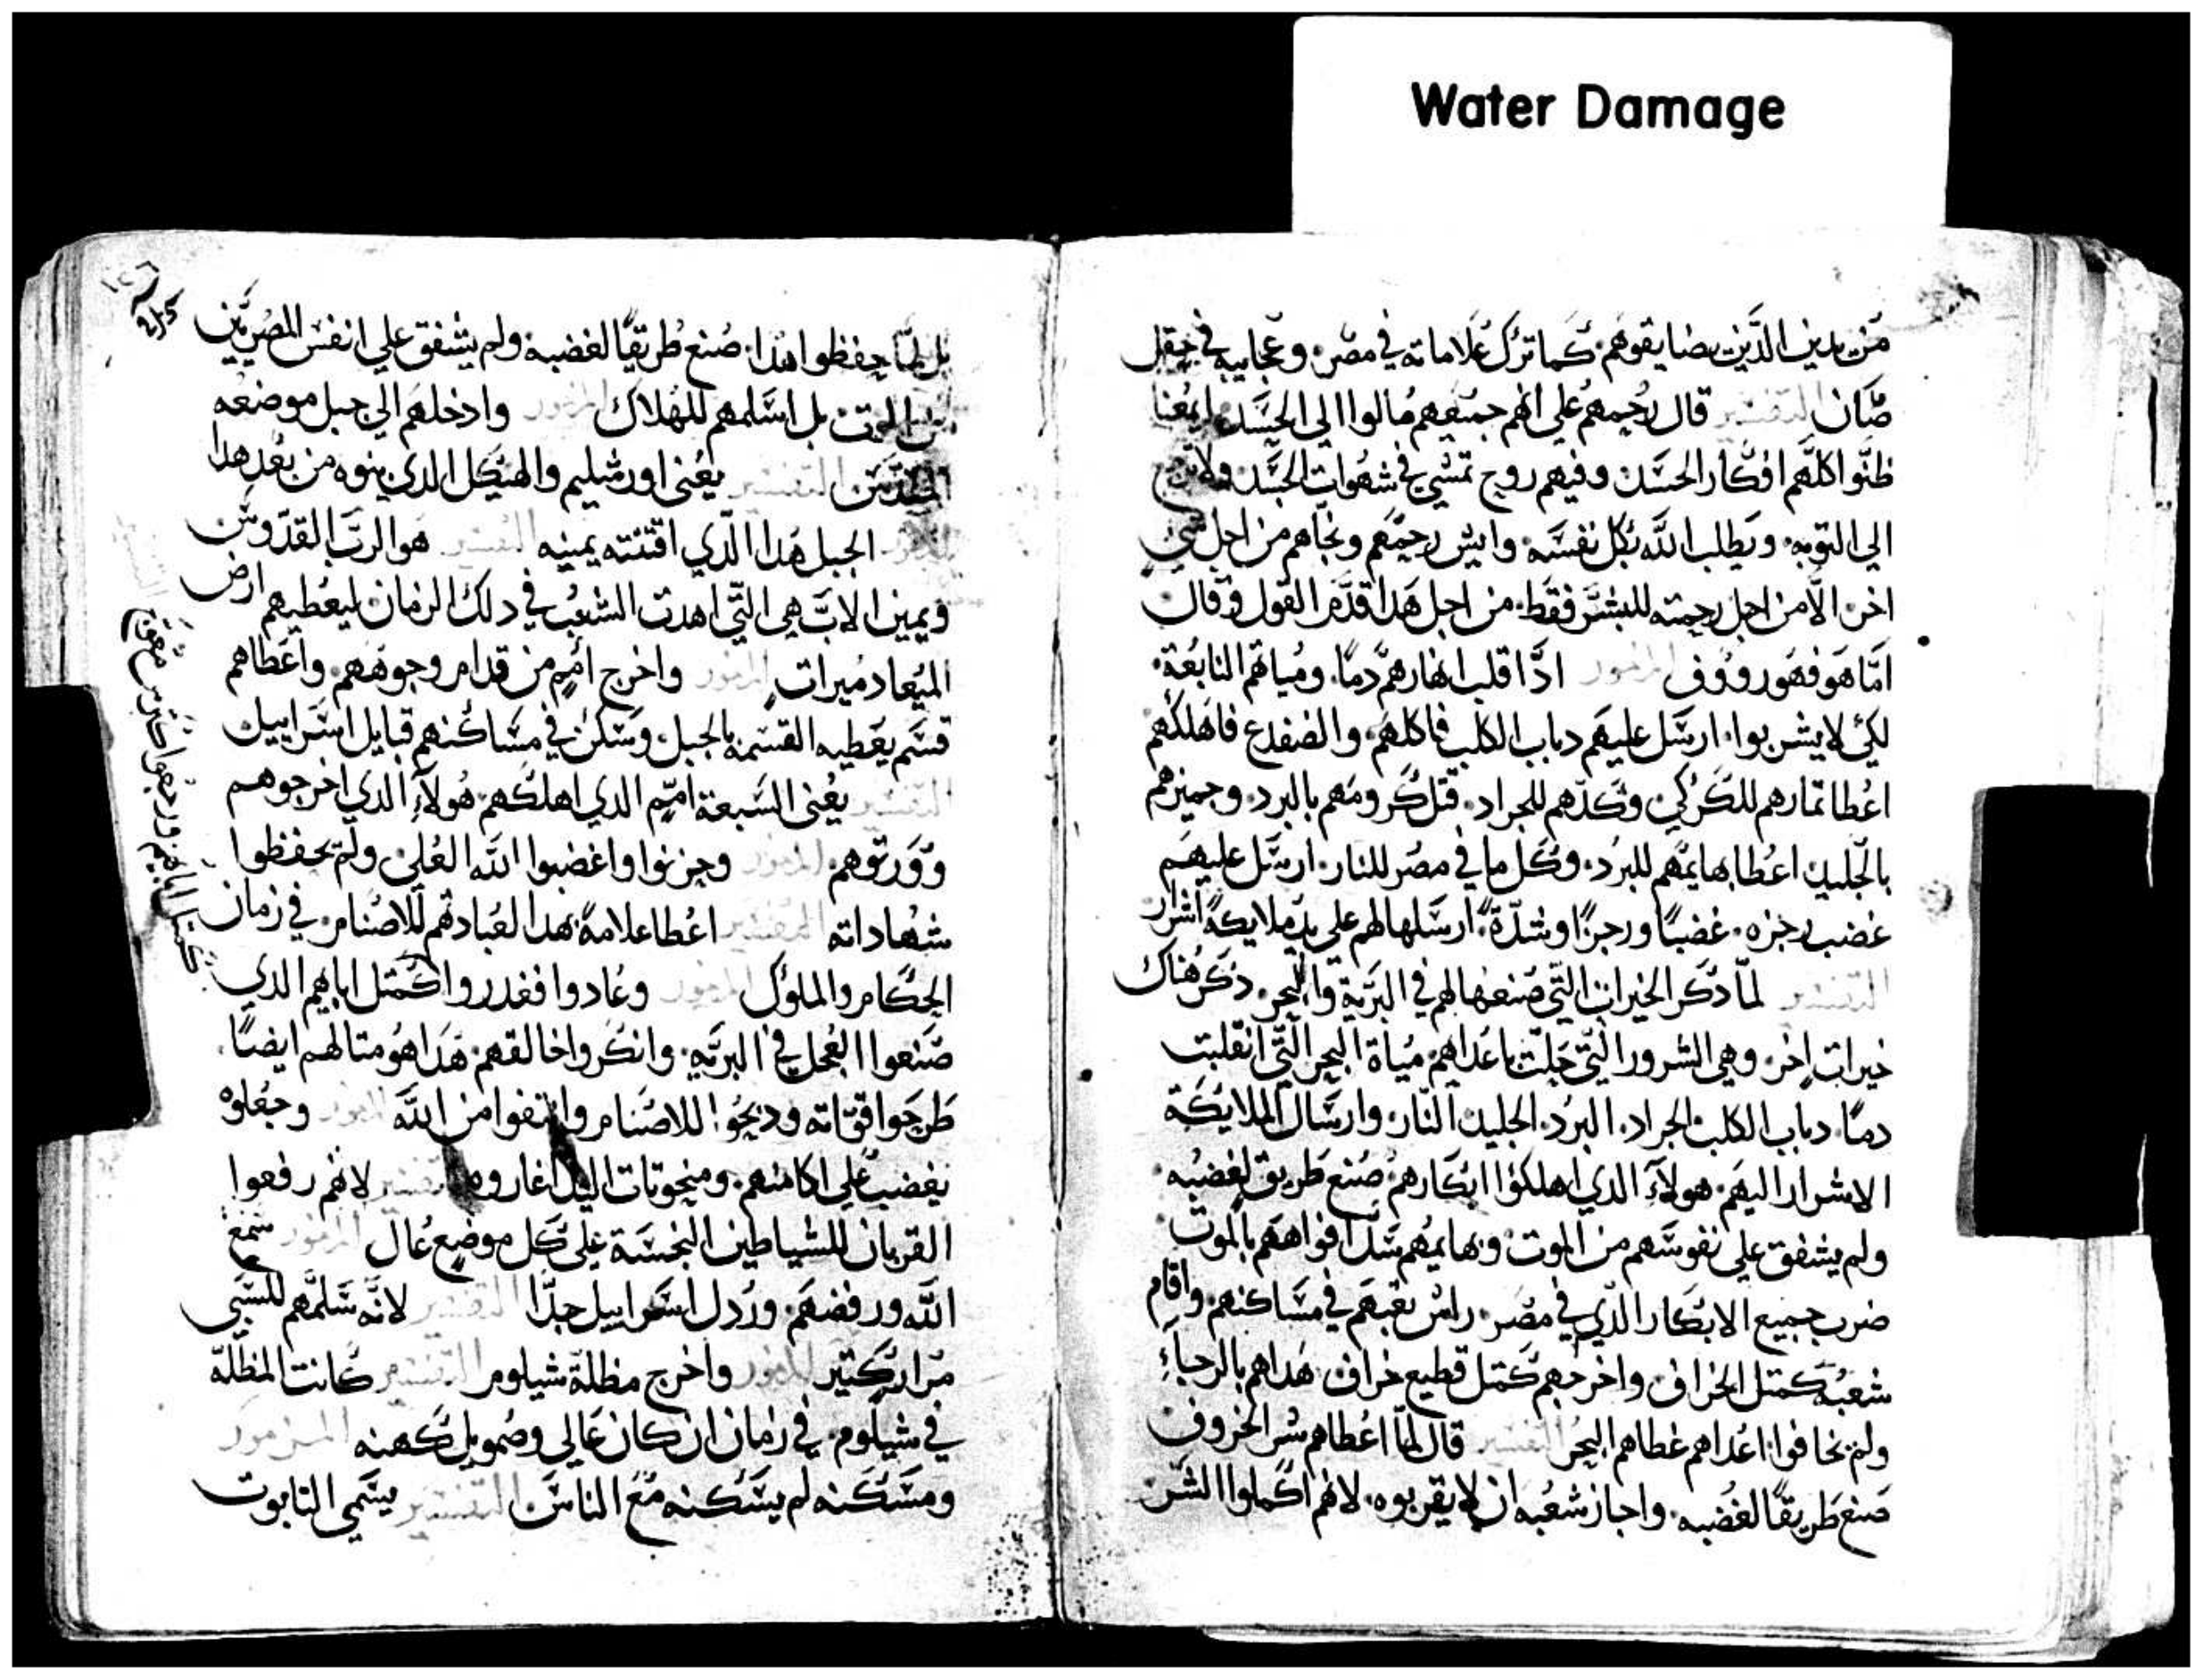 Water Damage
من يدين الذين يضايقوهم. كما ترك علاماته في مصر. وعجايبه في حقل
صّان التفسير قال رحيمهم علي انهم جميعهم مالوا الي الجسد ايمعنا
ظنوا كلهم افكار الجسد. وفيهم روح تمشي في شهوات الجسد ولا
الي التوبه. ويطلب الله بكل نفسه. وايش رحيمهم ونجاهم من اجل شي
اخر. الا من اجل رحمته للبشر فقط. من اجل هذا قدم القول وقال
اما هو فهو رووف المزمور اذا قلب انهارهم دما. ومياهم النابعة.
لكي لا يشربوا. ارسل عليهم دباب الكلب فاكلهم. والضفدع فاهلكهم
اعطا تمارهم للكركي وكدهم للجراد. قتل كرومهم بالبرد. وجميزهم
بالجليد. اعطا بهايمهم للبرد. وكل ما في مصر للنار. ارسل عليهم
غضب رجزه. غضبًا ورجزًا وشدّة. ارسلها لهم علي يد ملايكة اشرار
التفسير لما دكر الخيرات التي صنعها لهم في البرية والبحر. دكر هناك
خيرات اخر. وهي الشرور التي حلت باعداهم. مياة البحر التي انقلبت
دمًا. دباب الكلب. الجراد. البرد. الجليد. النار. وارسال الملايكة
الاشرار اليهم. هولاء الدي اهلكوا ابكارهم. صنع طريق لغضبه.
ولم يشفق علي نفوسهم من الموت. وبهايمهم سد افواههم بالموت
ضرب جميع الابكار الدي في مصر. راس تعبهم في مساكنهم. واقام
شعبه كمتل الخراف. واخرجهم كمتل قطيع خراف. هداهم بالرجاء
ولم يخافوا. اعداهم غطاهم البحر التفسير قال لما اعطاهم شر الخروف
صنع طريقًا لغضبه. واجاز شعبه ان لا يقربوه. لانهم اكملوا الشر.
بل لما حفظوا هدا. صنع طريقًا لغضبه. ولم يشفق علي انفس المصريين
من الموت بل اسلمهم للهلاك المزمور وادخلهم الي جبل موضعه
المقدس التفسير يعني اورشليم والهيكل الدي بنوه من بعد هدا
المزمور الجبل هدا الدي اقتنته يمينه التفسير هو الرب القدوس
ويمين الاب هي التي اهدت الشعب في دلك الزمان ليعطيهم ارض
الميعاد ميرات المزمور واخرج امم من قدام وجوههم. واعطاهم
قسم يعطيه القسمه بالجبل. وسكن في مساكنهم قبايل اسراييل
التفسير يعني السبعة امم الدي اهلكهم. هولاء الدي اخرجوهم
وورتوهم. المزمور وحزنوا واغضبوا الله العلي ولم يحفظوا
شهاداته التفسير اعطا علامة بهدا لعبادتهم للاصنام. في زمان
الحكام والملوك المزمور وعادوا فغدروا كمتل اباهيم الدي
صنعوا العجل في البرية. وانكروا خالقهم. هدا هو متالهم ايضًا.
طرحوا قوّاته ودبحوا للاصنام وانتفوا من الله المزمور وجعلوه
يغضب علي اكامهم. ومنحوتات اليد اغاروه التفسير لانهم رفعوا
القربان للشياطين النجسة علي كل موضع عال المزمور سمع
الله ورفضهم. وردل اسراييل جدًا التفسير لانه سلمهم للسبي
مرار كتير المزمور واخرج مظلة شيلوم التفسير كانت المظلة
في شيلوم. في زمان ان كان عالي وصمويل كهنه المزمور
ومسكنه لم يسكنه مع الناس التفسير يسمي التابوت